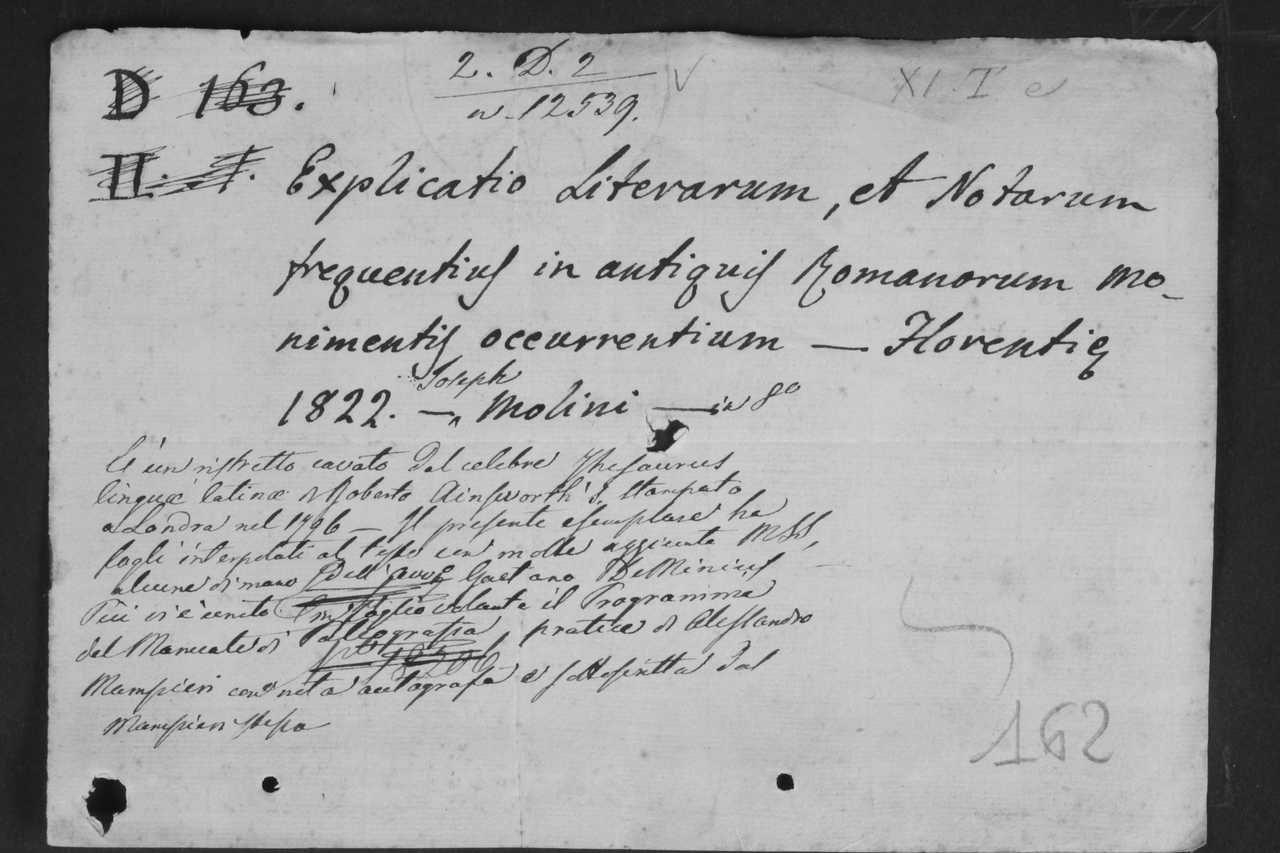 D 163.
2. D. 2
n. 12539.
XI. I e
II. I.
Explicatio Literarum, et Notarum
frequentius in antiquis Romanorum Mo-
nimentis occurrentium — Florentiæ
1822. — Joseph Molini — in 8º
È un ristretto cavato dal celebre Thesaurus
linguæ latinæ di Roberto Ainsworth stampato
a Londra nel 1796 — Il presente esemplare ha
fogli interpolati al testo con molte aggiunte MSS,
alcune di mano dell' Gaetano De Minicis
Più vi è unito in foglio volante il Programma
del Manuale di pratica di Alessandro
Mampieri con nota autografa e sottoscritta dal
Mampieri stesso
162